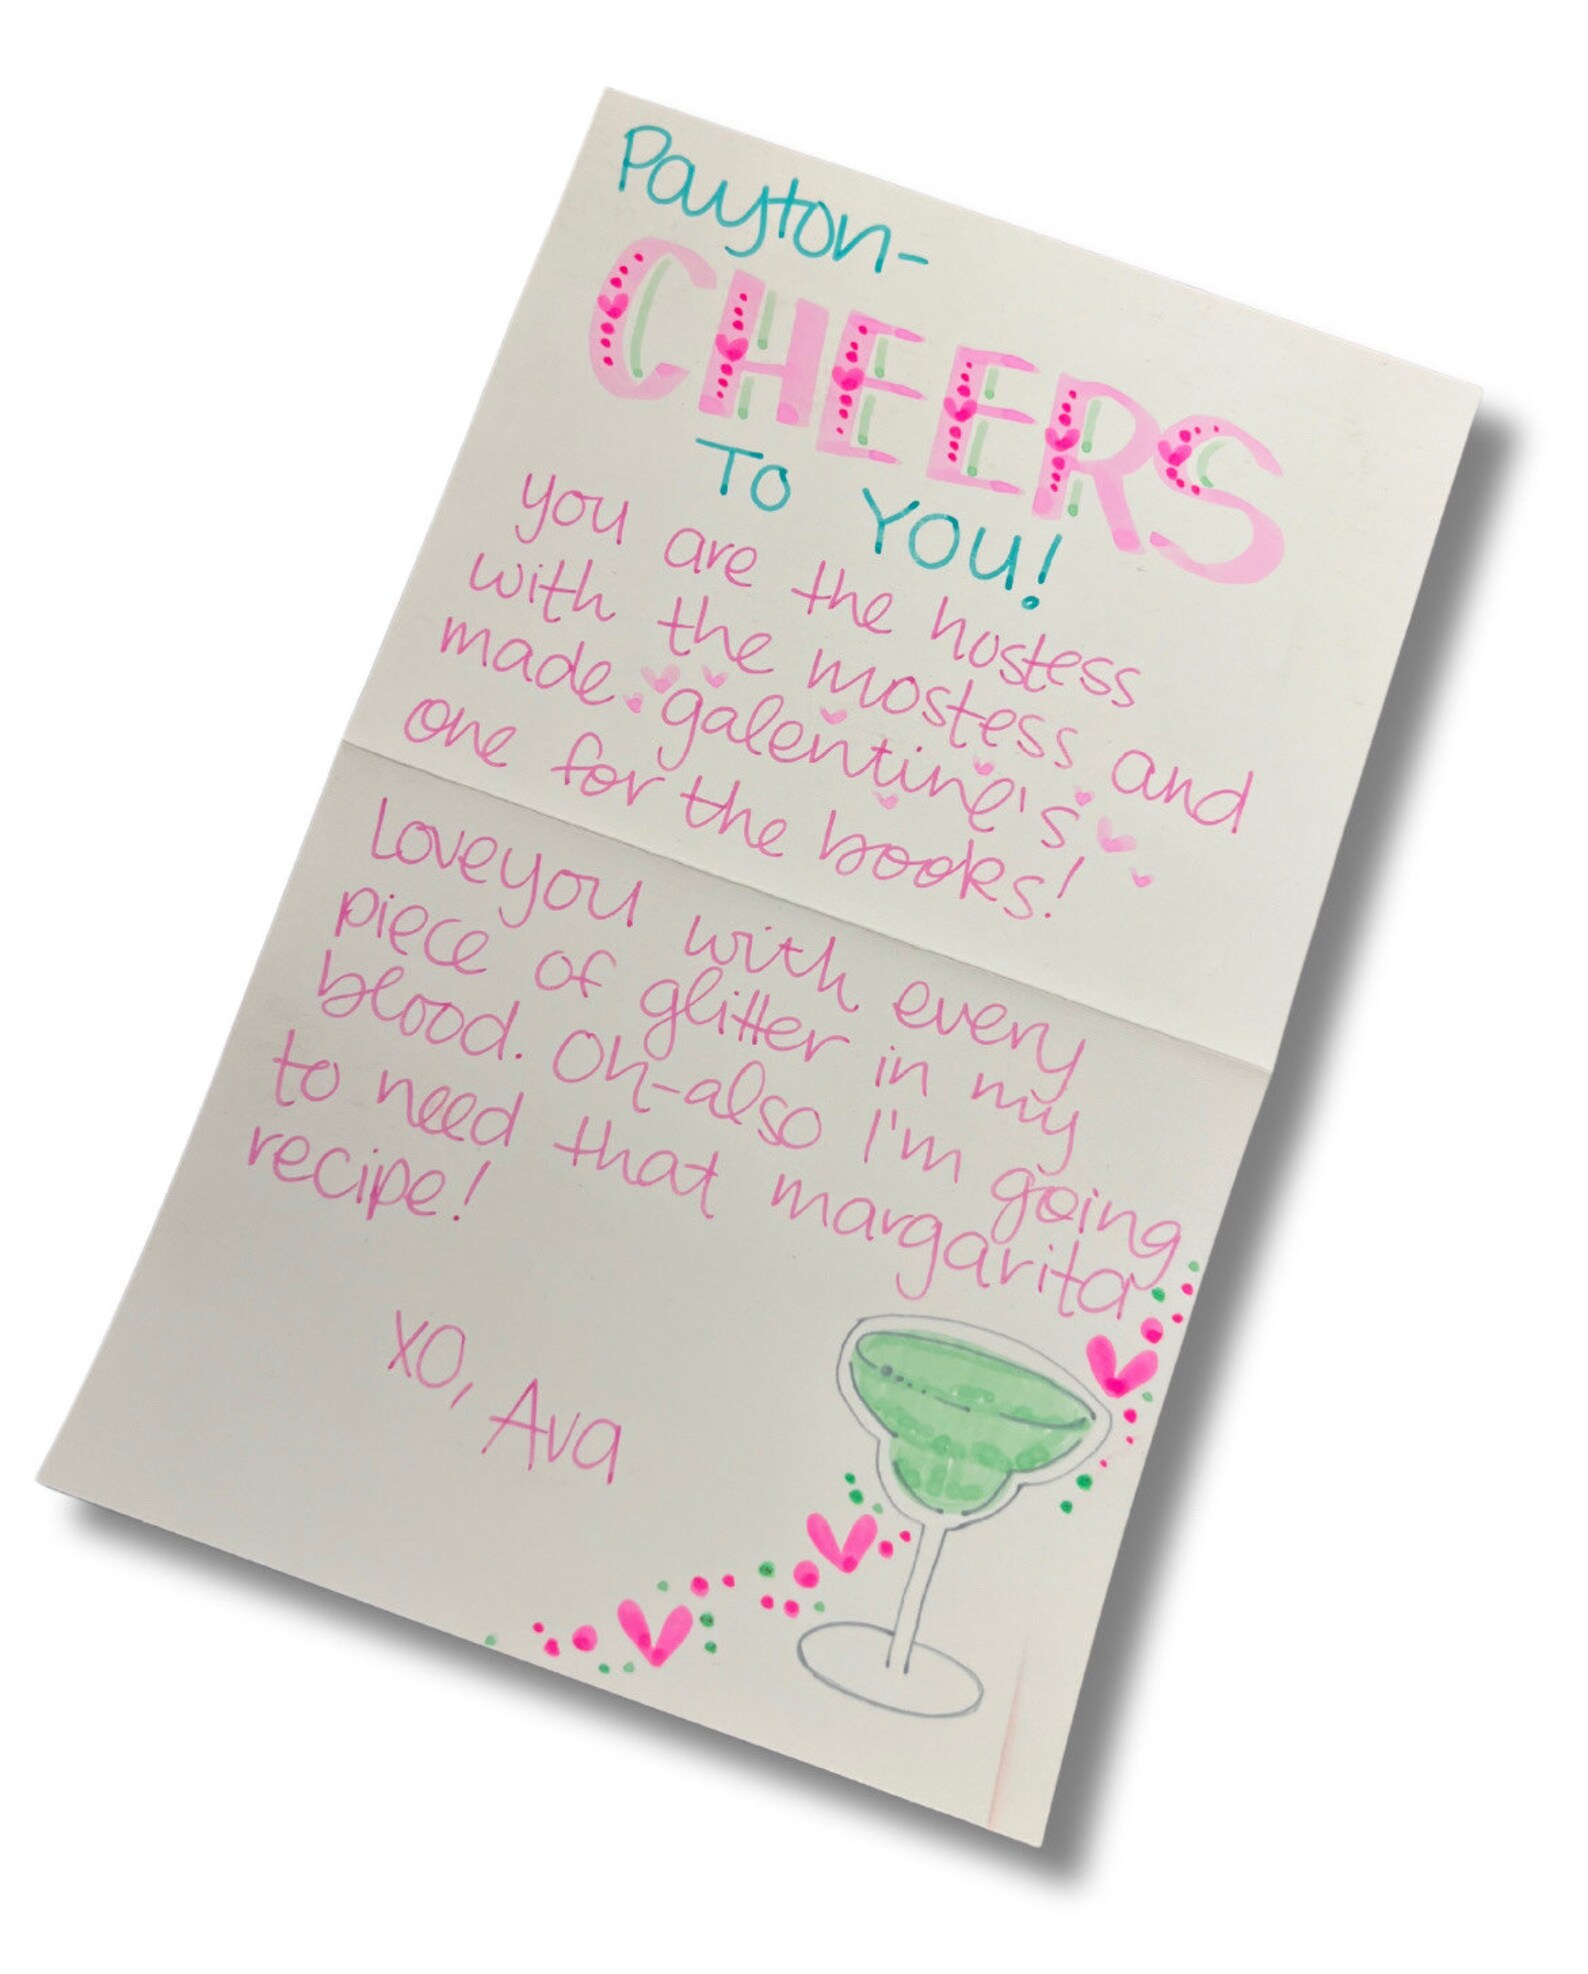 Payton-
CHEERS
TO YOU!
you are the hostess
with the mostess and
made galentine's
one for the books!
Love you with every
piece of glitter in my
blood. Oh-also I'm going
to need that margarita
recipe!
XO, Ava